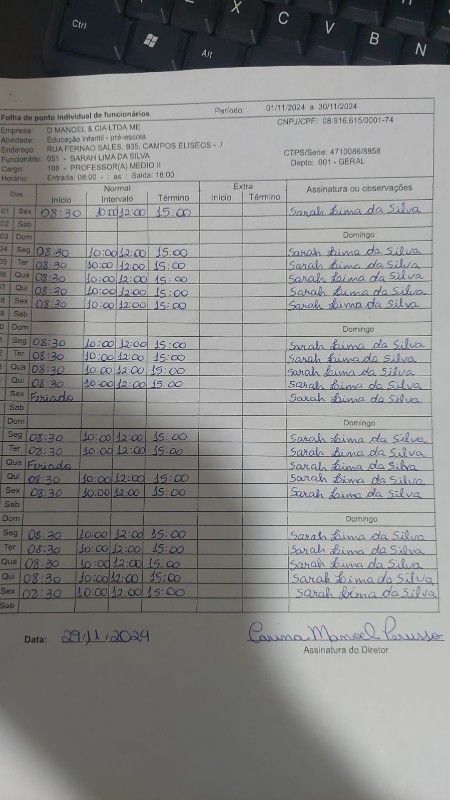 Ctrl
Alt
X
C
V
B
N
Folha de ponto individual de funcionários Período: 01/11/2024 a 30/11/2024
Empresa: D MANOEL & CIA LTDA ME CNPJ/CPF: 08.916.615/0001-74
Atividade: Educação infantil - pré-escola
Endereço: RUA FERNAO SALES, 935, CAMPOS ELISEOS - /
Funcionário: 051 - SARAH LIMA DA SILVA CTPS/Serie: 4710086/8858
Cargo: 108 - PROFESSOR(A) MEDIO II Depto: 001 - GERAL
Horário: Entrada: 08:00 - : as : Saída: 18:00
Dias Normal Extra Assinatura ou observações
Início Intervalo Término Início Término
01 Sex 08:30 10:00 12:00 15:00 Sarah Lima da Silva
02 Sab
03 Dom Domingo
04 Seg 08:30 10:00 12:00 15:00 Sarah Lima da Silva
05 Ter 08:30 10:00 12:00 15:00 Sarah Lima da Silva
06 Qua 08:30 10:00 12:00 15:00 Sarah Lima da Silva
07 Qui 08:30 10:00 12:00 15:00 Sarah Lima da Silva
8 Sex 08:30 10:00 12:00 15:00 Sarah Lima da Silva
9 Sab
0 Dom Domingo
1 Seg 08:30 10:00 12:00 15:00 Sarah Lima da Silva
2 Ter 08:30 10:00 12:00 15:00 Sarah Lima da Silva
Qua 08:30 10:00 12:00 15:00 Sarah Lima da Silva
Qui 08:30 10:00 12:00 15:00 Sarah Lima da Silva
Sex Feriado Sarah Lima da Silva
Sab
Dom Domingo
Seg 08:30 10:00 12:00 15:00 Sarah Lima da Silva
Ter 08:30 10:00 12:00 15:00 Sarah Lima da Silva
Qua Feriado Sarah Lima da Silva
Qui 08:30 10:00 12:00 15:00 Sarah Lima da Silva
Sex 08:30 10:00 12:00 15:00 Sarah Lima da Silva
Sab
Dom Domingo
Seg 08:30 10:00 12:00 15:00 Sarah Lima da Silva
Ter 08:30 10:00 12:00 15:00 Sarah Lima da Silva
Qua 08:30 10:00 12:00 15:00 Sarah Lima da Silva
Qui 08:30 10:00 12:00 15:00 Sarah Lima da Silva
Sex 08:30 10:00 12:00 15:00 Sarah Lima da Silva
Sab
Data: 29/11/2024 Carina Manoel Perusso
Assinatura do Diretor